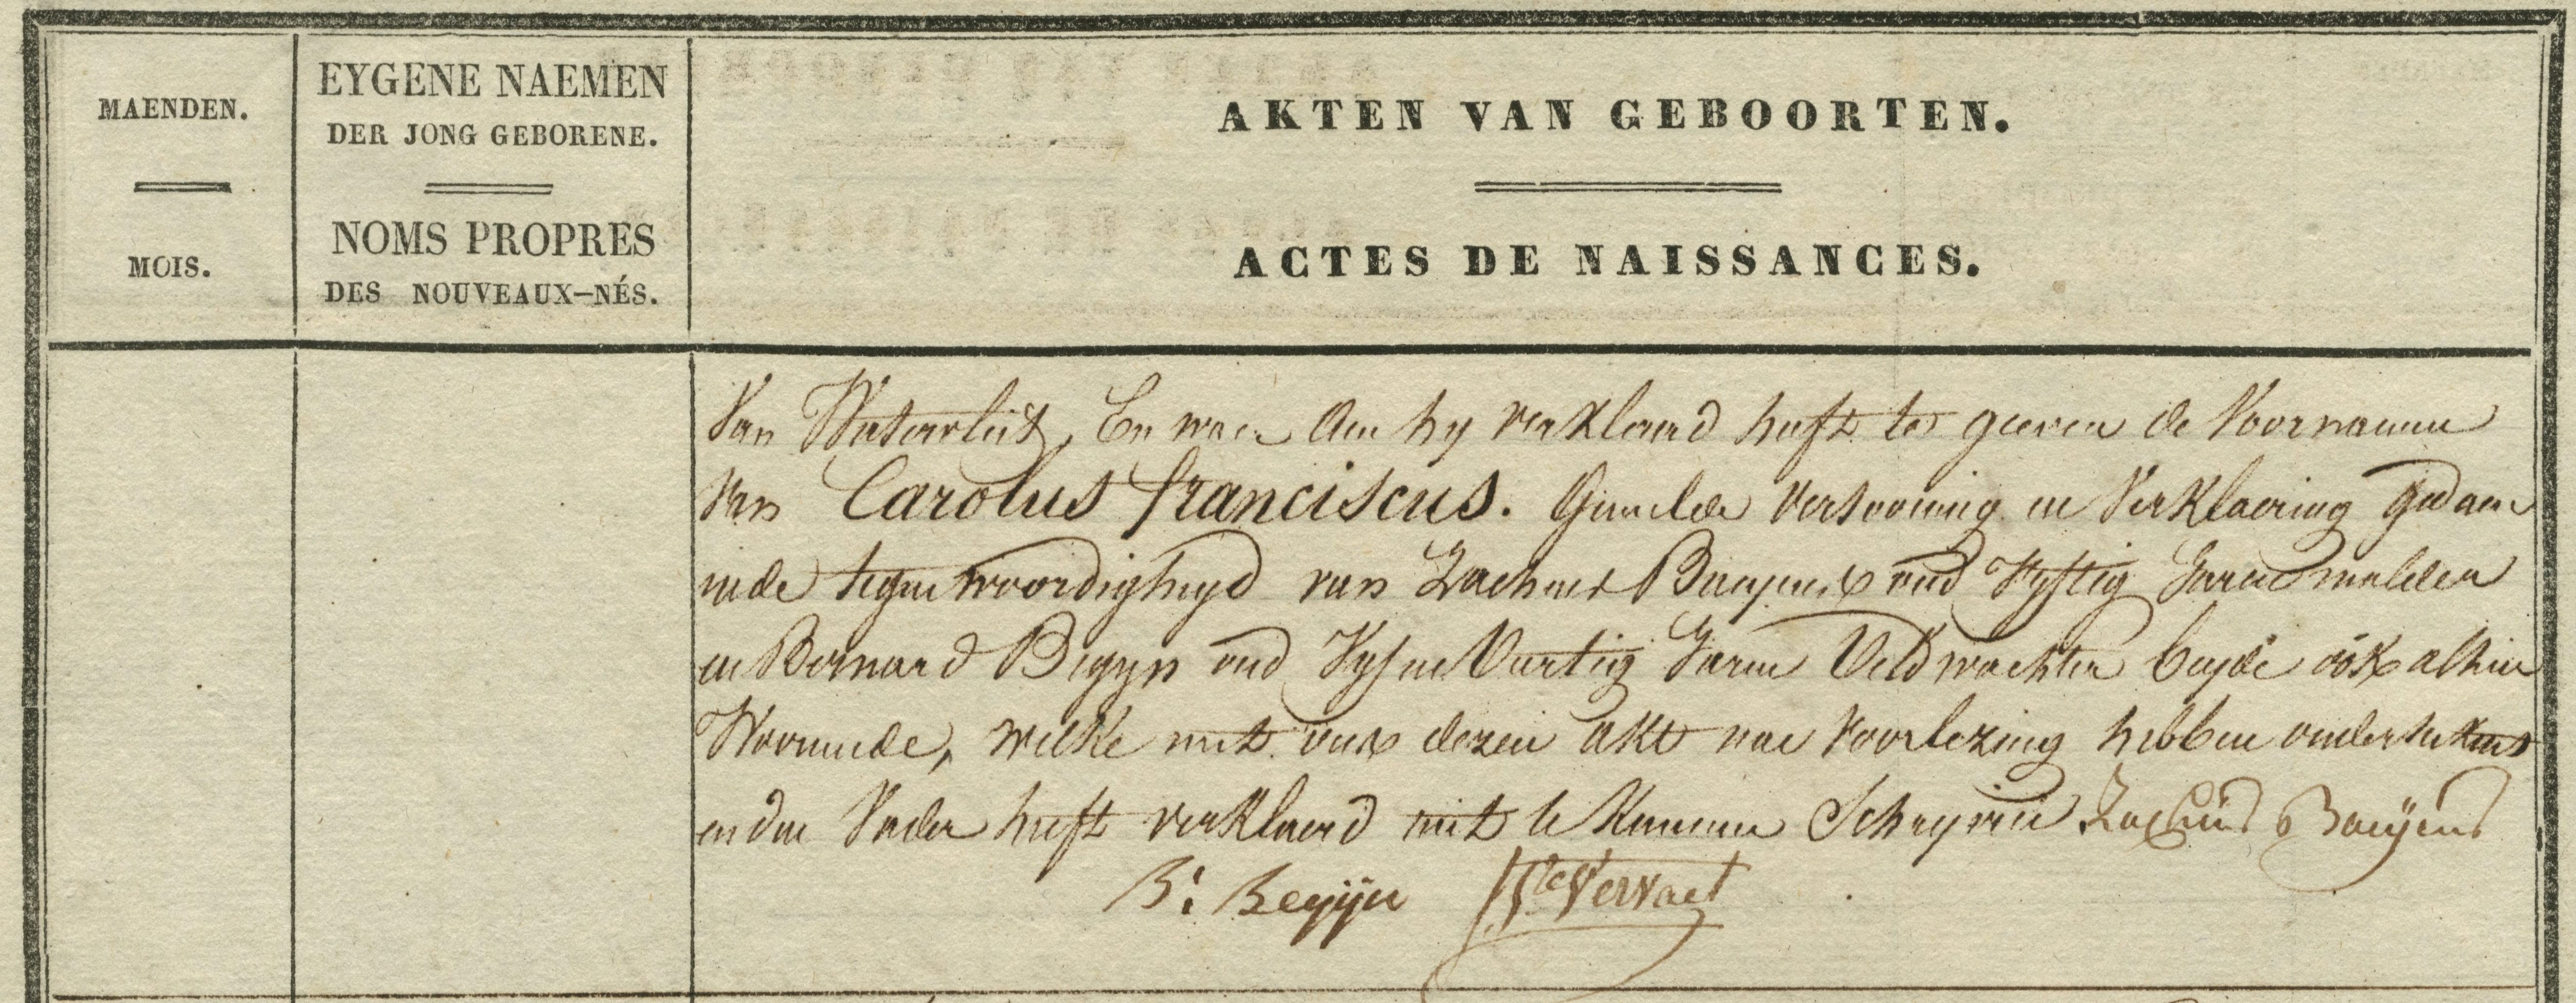 MAENDEN.
MOIS.
EYGENE NAEMEN
DER JONG GEBORENE.
NOMS PROPRES
DES NOUVEAUX–NÉS.
AKTEN VAN GEBOORTEN.
ACTES DE NAISSANCES.
Van Watervliet, En waer Aen hy verklaerd heeft te geeven de Voornaemen
Van Carolus franciscus. Gemelde Vertooning en Verklaering gedaen
in de tegenwoordigheyd van Zacheus Bauyens oud Vyftig Jaren mulder
en Bernard Begyn oud Vyf en Veertig Jaren Veldwachter beyde ook alhier
Woonende, welke met ons dezen akt nae Voorlezing hebben onderteekent
en den Vader heeft verklaerd niet te Kunnen Schryven Zacheus Bauÿens
B: Begÿn Vervaet